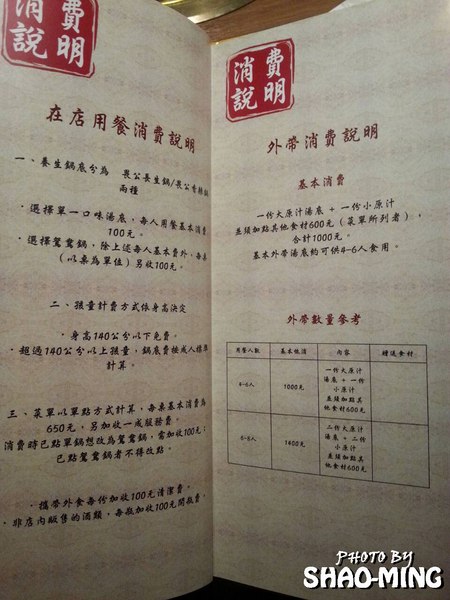 消費
說明
在店用餐消費說明
一、養生鍋底分為 畏公長生鍋/畏公香辣鍋
兩種
·選擇單一口味湯底，每人用餐基本消費
100元。
·選擇鴛鴦鍋，除上述每人基本費外，每桌
（以桌為單位）另收100元。
二、孩童計費方式依身高決定
·身高140公分以下免費。
·超過140公分以上孩童，鍋底費按成人標準
計算。
三、菜單以單點方式計算，每桌基本消費為
650元，另加收一成服務費。
消費時已點單鍋想改為鴛鴦鍋，需加收100元；
已點鴛鴦鍋者不得改點。
·攜帶外食每份加收100元清潔費。
·非店內販售的酒類，每瓶加收100元開瓶費。
消費
說明
外帶消費說明
基本消費
一份大原汁湯底 + 一份小原汁
並須加點其他食材600元（菜單所列者），
合計1000元。
基本外帶湯底約可供4-6人食用。
外帶數量參考
用餐人數 基本低消 內容 贈送食材
4-6人 1000元 一份大原汁
湯底 + 一份
小原汁
並須加點其
他食材600元
6-8人 1400元 二份大原汁
湯底 + 二份
小原汁
並須加點其
他食材600元
PHOTO BY
SHAO-MING